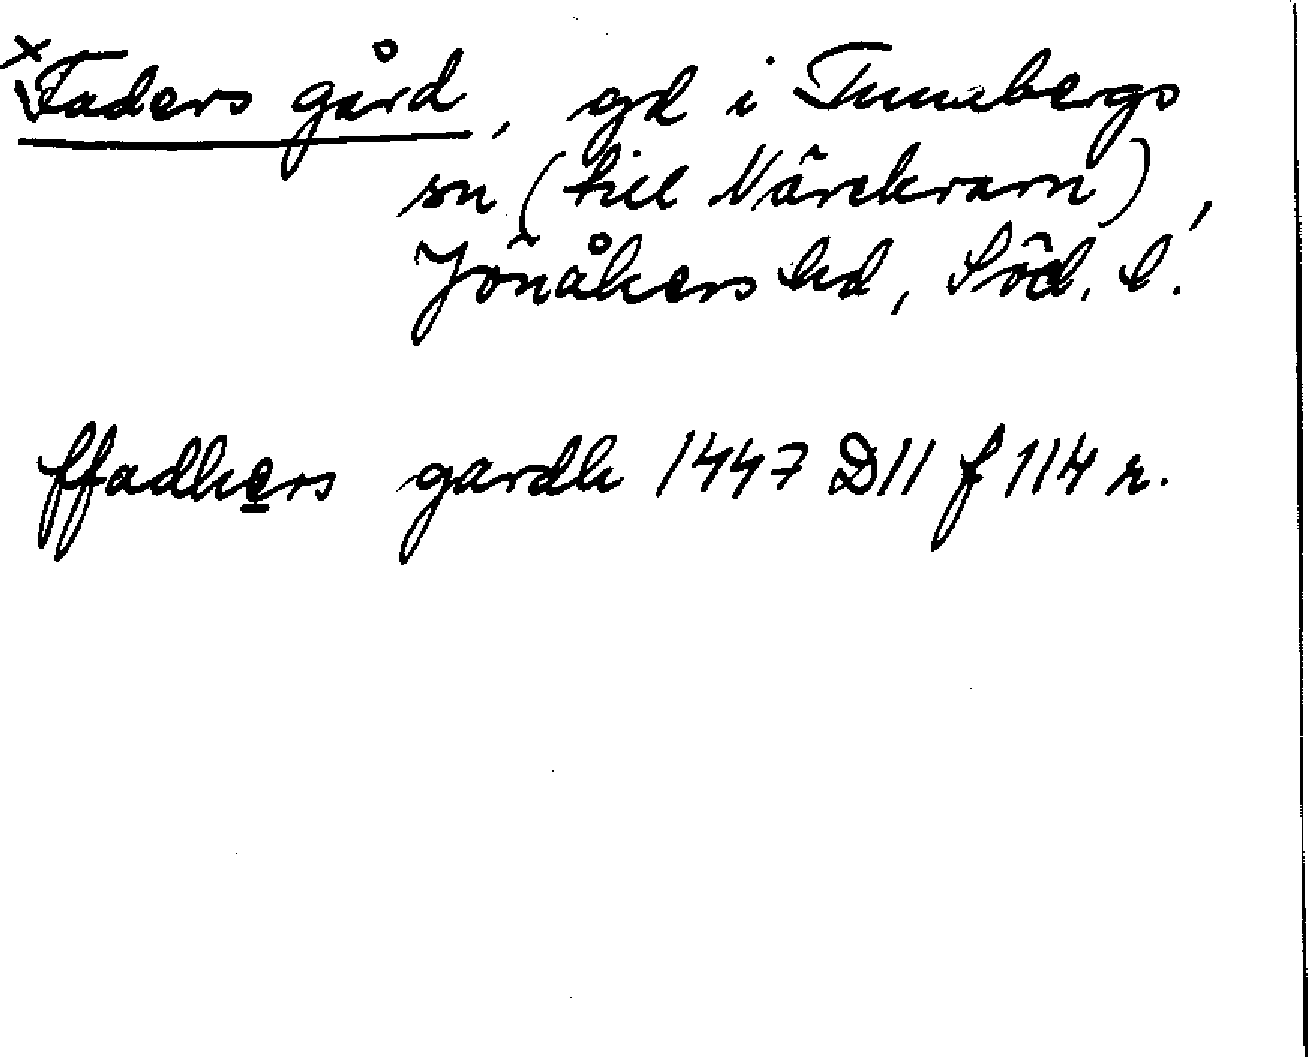 × Faders gård, gd i Tunabergs
sn (till Närekvarn),
Jönåkers hd, Söd. l.
ffadhers gardh 1447 D11 f 114 r.